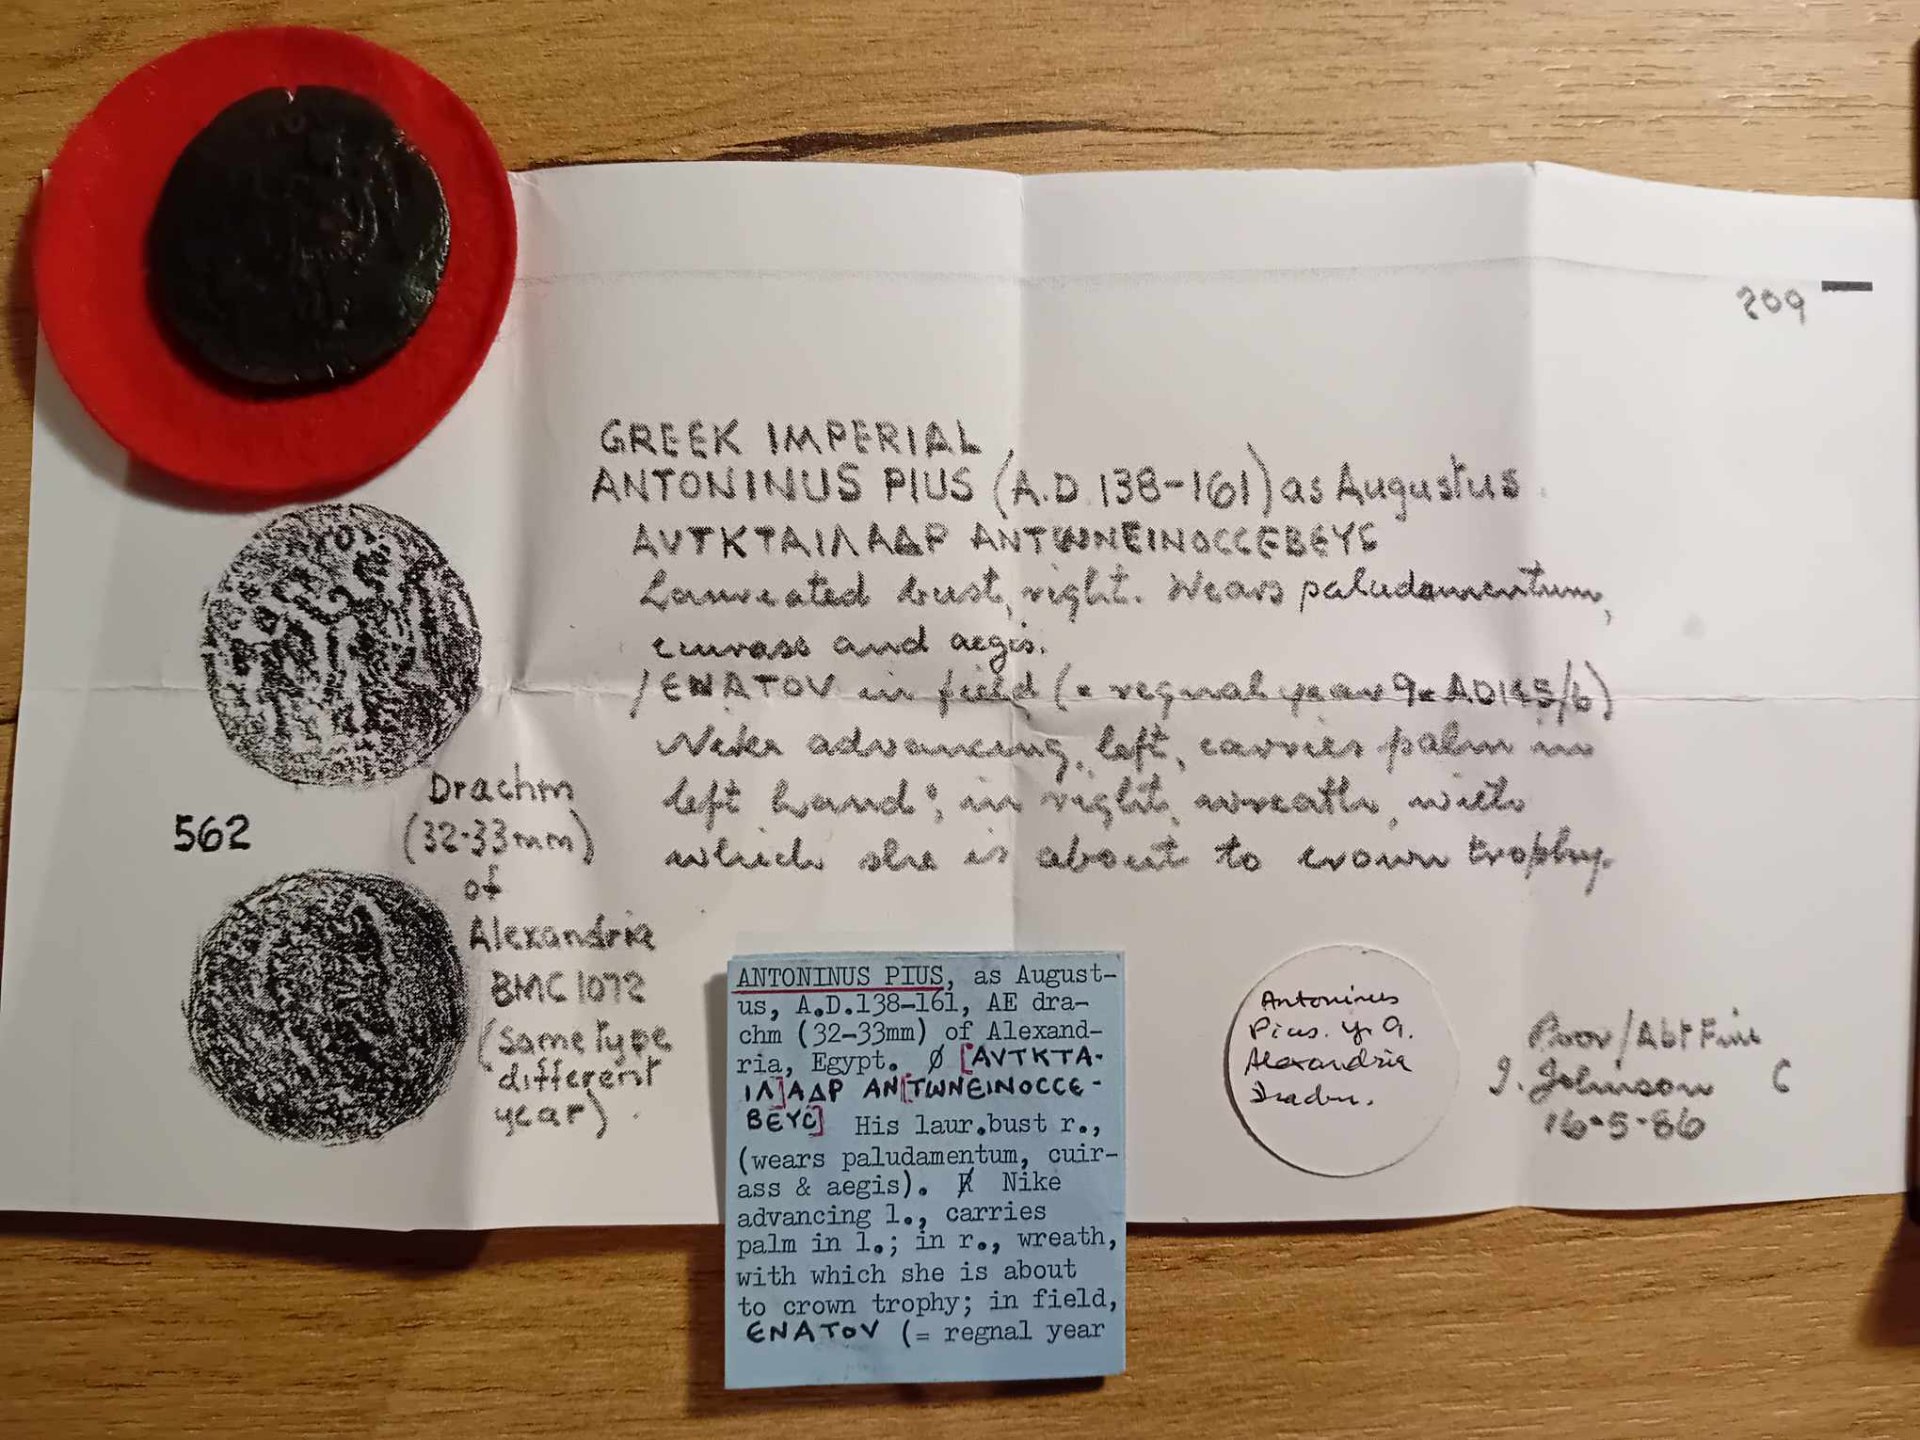 209
GREEK IMPERIAL
ANTONINUS PIUS (A.D. 138-161) as Augustus
ΑVΤΚΤΑΙΛΑΔΡ ΑΝΤWΝΕΙΝΟCCΕΒΕΥC
Laureated bust, right. Wears paludamentum,
cuirass and aegis.
/ЄΝΑΤΟV in field (= regnal year 9 = AD145/6)
Nike advancing, left, carries palm in
left hand; in right, wreath, with
which she is about to crown trophy.
562
Drachm
(32-33mm)
of
Alexandria
BMC 1072
(same type
different
year)
ANTONINUS PIUS, as August-
us, A.D.138-161, AE dra-
chm (32-33mm) of Alexand-
ria, Egypt. Ø [ΑVΤΚΤΑ-
ΙΛ]ΑΔΡ ΑΝ[ΤWΝЄΙΝΟCCЄ-
ΒЄΥC] His laur.bust r.,
(wears paludamentum, cuir-
ass & aegis). R Nike
advancing l., carries
palm in l.; in r., wreath,
with which she is about
to crown trophy; in field,
ЄΝΑΤΟV (= regnal year
Antoninus
Pius. yr 9.
Alexandria
Drachm.
Poor/Abt Fine
I. Johnson C
16-5-86